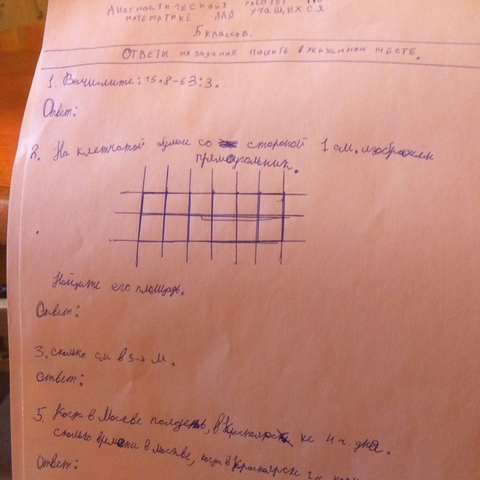 ДИАГНОСТИЧЕСКОЙ РАБОТЫ ПО
МАТЕМАТИКЕ ДЛЯ УЧАЩИХСЯ
5 классов.
ОТВЕТЫ на задания пишите в указанном месте.
1. Вычислите: 15+8-63:3.
Ответ:
2. На клетчатой бумаге со стороной 1 см. изображён
прямоугольник.
Найдите его площадь.
Ответ:
3. сколько см в м.
ответ:
5. Когда в Москве полдень, в Красноярске 4 ч дня.
сколько времени в Москве, когда в Красноярске
Ответ: